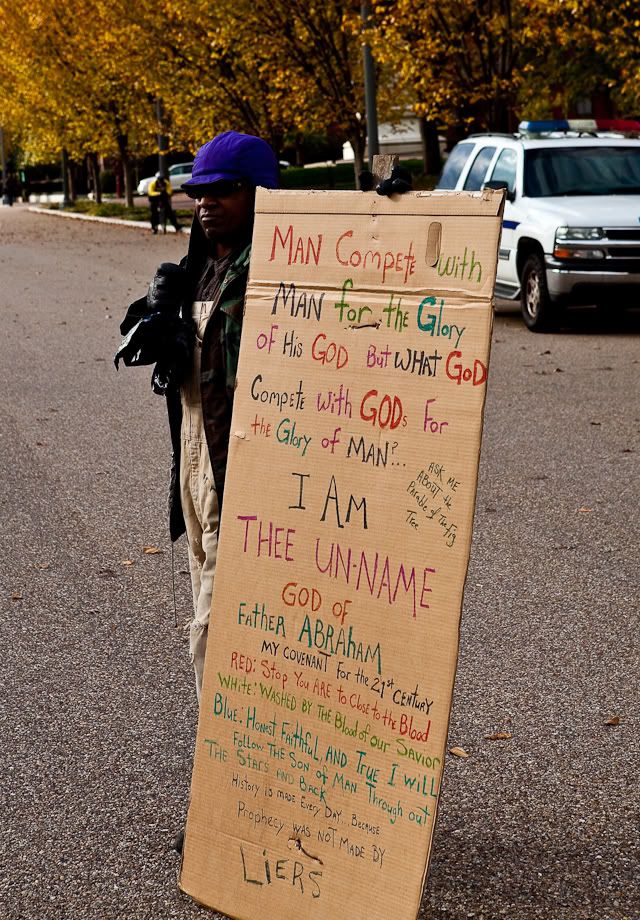 MAN Compete with
MAN for the Glory
OF His GOD But WHAT GOD
Compete with GODs For
the Glory of MAN?...
ASK ME
ABOUT the
Parable of The Fig
Tree
I AM
THEE UN-NAME
GOD OF
Father ABRAHAM
MY COVENANT For the 21st CENTURY
RED: Stop You ARE to Close to the Blood
White: WASHED BY THE Blood of our Savior
Blue: Honest Faithful, AND True I will
Follow THE SON of MAN Through out
THE Stars AND Back
History is made Every Day. Because
Prophecy WAS NOT MADE BY
LiERS